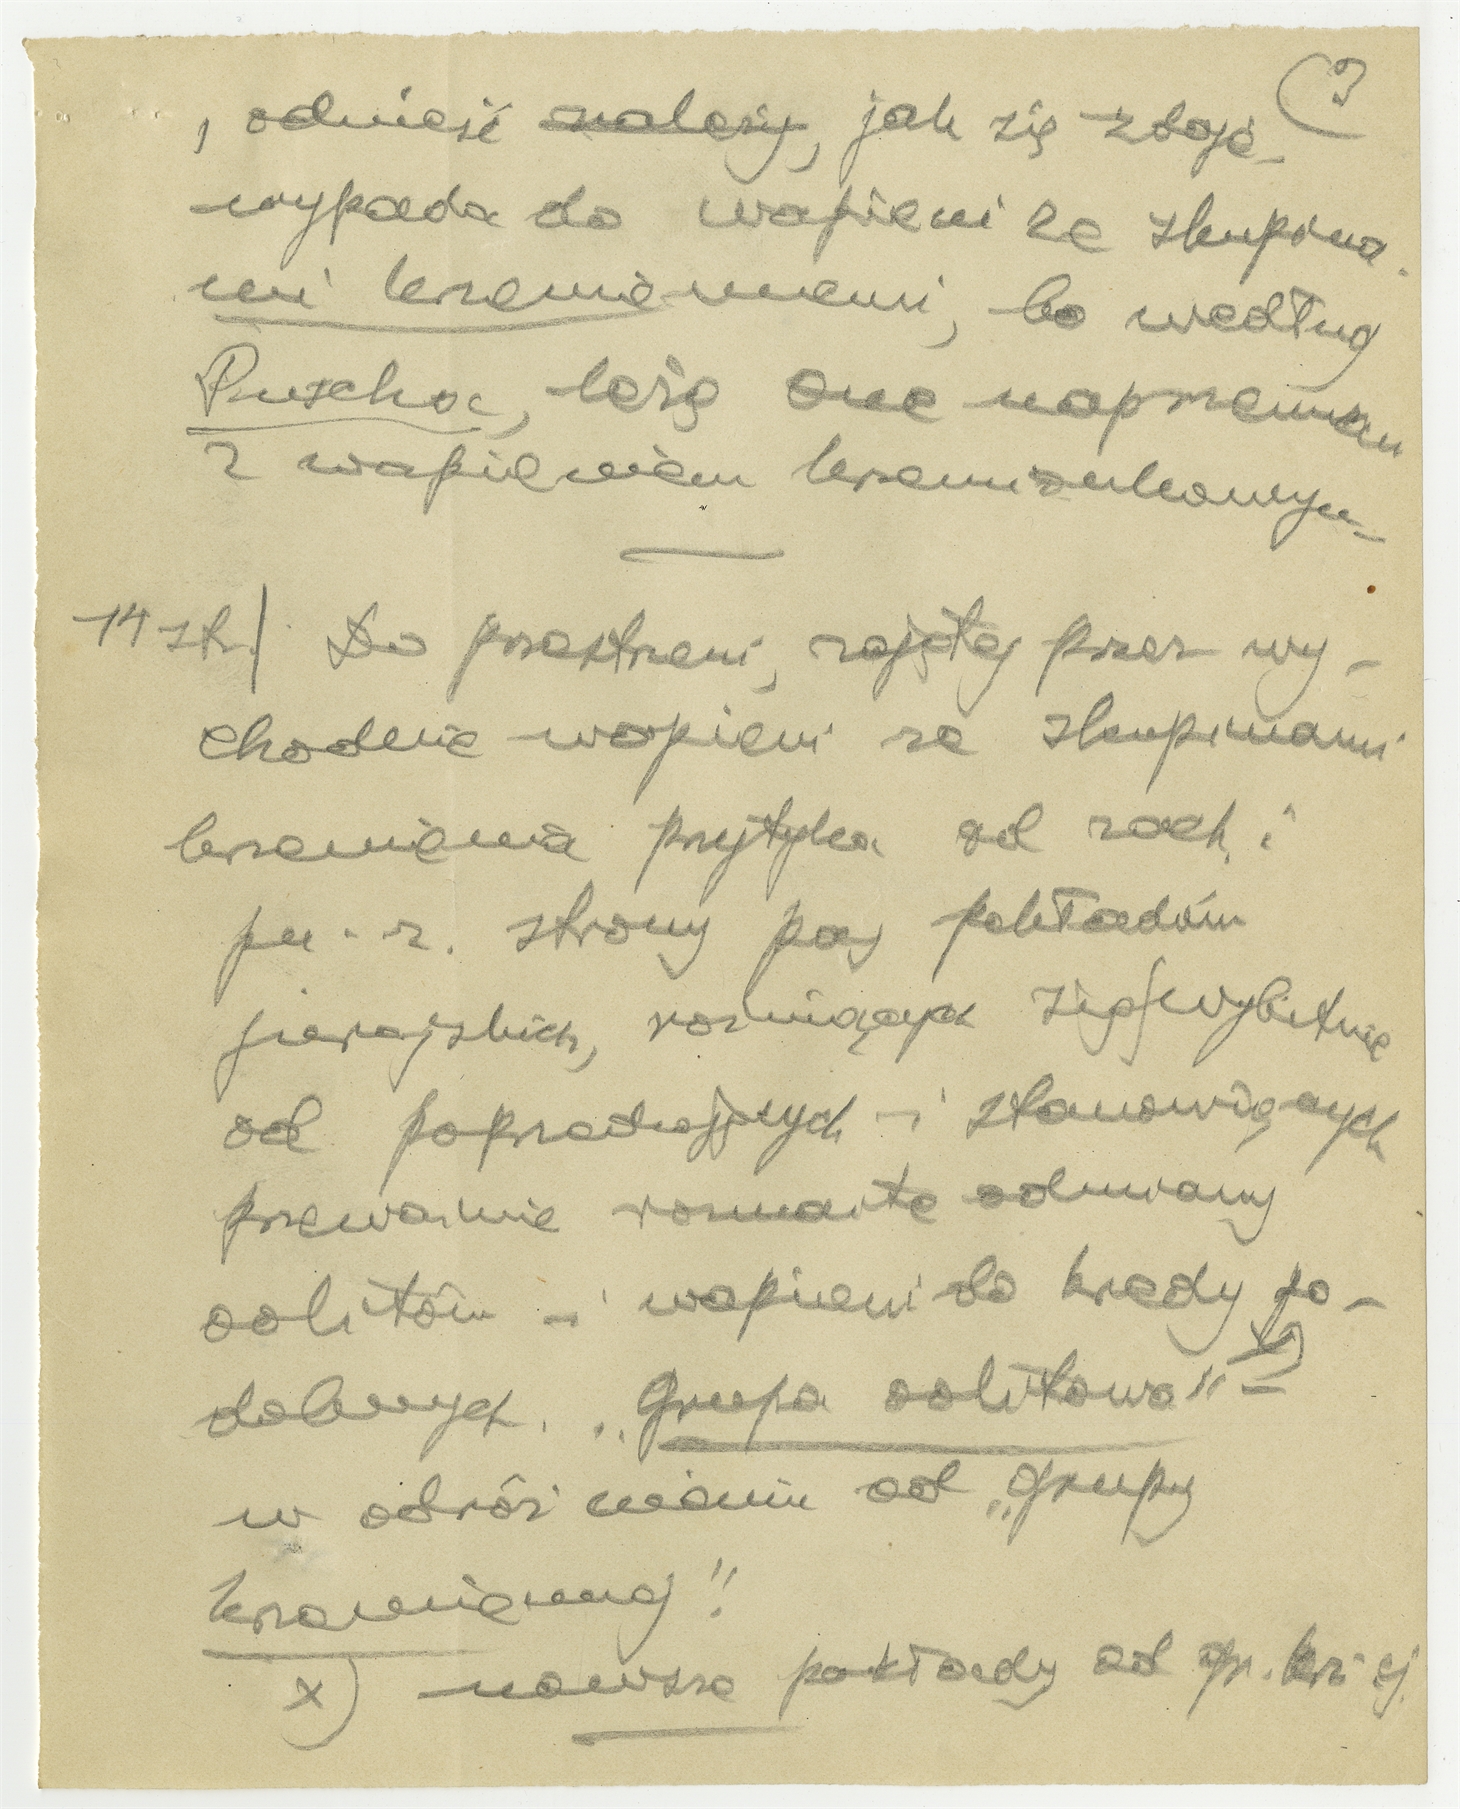 , odnieść należy, jak się zdaje
wypada do wapieni ze skupina-
mi krzemiennemi, bo według
Puscha, leżą one naprzemian
z wapieniem krzemionkowym
14 str. / Do przestrzeni, zajętej przez wy-
chodnie wapieni ze skupinami
krzemienia przytyka od zach. i
pn.-z. strony pas pokładów
jurajskich, rozniących się wybitnie
od poprzedzających i stanowiących
przeważnie rozmaite odmiany
oolitów i wapieni do kredy po-
dobnych. „Grupa oolitowa" x)
w odróżnieniu od „grupy
krzemiennej"
x) nowsze pokłady od gr. krz-ej.